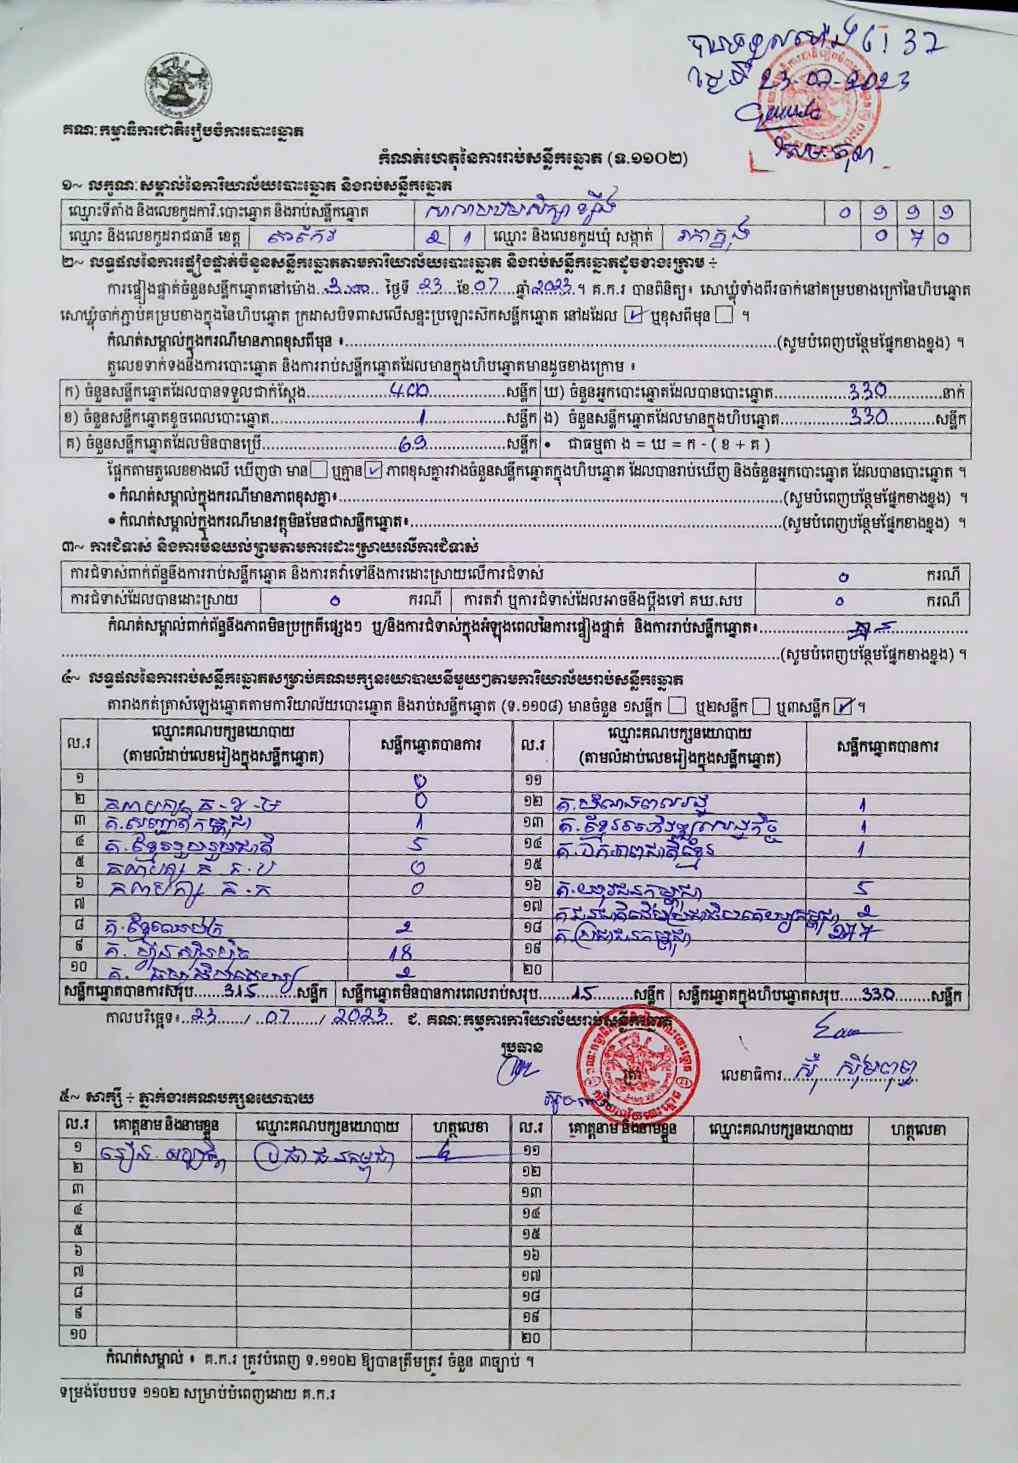 ថ្ងៃទី 23-07-2023
គណៈកម្មាធិការជាតិរៀបចំការបោះឆ្នោត
កំណត់ហេតុនៃការរាប់សន្លឹកឆ្នោត (ទ.១១០២)
១~ លក្ខណៈសម្គាល់នៃការិយាល័យបោះឆ្នោត និងរាប់សន្លឹកឆ្នោត
ឈ្មោះទីតាំង និងលេខកូដការិ.បោះឆ្នោត និងរាប់សន្លឹកឆ្នោត សាលាបឋមសិក្សា
ឈ្មោះ និងលេខកូដរាជធានី ខេត្ត តាកែវ 2 1 ឈ្មោះ និងលេខកូដឃុំ សង្កាត់
២~ លទ្ធផលនៃការផ្ទៀងផ្ទាត់ចំនួនសន្លឹកឆ្នោតតាមការិយាល័យបោះឆ្នោត និងរាប់សន្លឹកឆ្នោតដូចខាងក្រោម ÷
ការផ្ទៀងផ្ទាត់ចំនួនសន្លឹកឆ្នោតនៅម៉ោង 3:00 ថ្ងៃទី 23 ខែ 07 ឆ្នាំ 2023 ។ គ.ក.រ បានពិនិត្យ៖ សោឃ្លុំទាំងពីរចាក់នៅគម្របខាងក្រៅនៃហិបឆ្នោត
សោឃ្លុំចាក់ភ្ជាប់គម្របខាងក្នុងនៃហិបឆ្នោត ក្រដាសបិទពាសលើសន្ទះប្រឡោះសឹកសន្លឹកឆ្នោត នៅដដែល ☑ ឬខុសពីមុន ☐ ។
កំណត់សម្គាល់ក្នុងករណីមានភាពខុសពីមុន ៖ (សូមបំពេញបន្ថែមផ្នែកខាងខ្នង) ។
តួលេខទាក់ទងនឹងការបោះឆ្នោត និងការរាប់សន្លឹកឆ្នោតដែលមានក្នុងហិបឆ្នោតមានដូចខាងក្រោម ៖
ក) ចំនួនសន្លឹកឆ្នោតដែលបានទទួលជាក់ស្តែង 400 សន្លឹក ឃ) ចំនួនអ្នកបោះឆ្នោតដែលបានបោះឆ្នោត 330 នាក់
ខ) ចំនួនសន្លឹកឆ្នោតខូចពេលបោះឆ្នោត 1 សន្លឹក ង) ចំនួនសន្លឹកឆ្នោតដែលមានក្នុងហិបឆ្នោត 330 សន្លឹក
គ) ចំនួនសន្លឹកឆ្នោតដែលមិនបានប្រើ 69 សន្លឹក • ជាធម្មតា ង = ឃ = ក - ( ខ + គ )
ផ្អែកតាមតួលេខខាងលើ ឃើញថា មាន ☐ ឬគ្មាន ☑ ភាពខុសគ្នារវាងចំនួនសន្លឹកឆ្នោតក្នុងហិបឆ្នោត ដែលបានរាប់ឃើញ និងចំនួនអ្នកបោះឆ្នោត ដែលបានបោះឆ្នោត ។
• កំណត់សម្គាល់ក្នុងករណីមានភាពខុសគ្នា៖ (សូមបំពេញបន្ថែមផ្នែកខាងខ្នង) ។
• កំណត់សម្គាល់ក្នុងករណីមានវត្ថុមិនមែនជាសន្លឹកឆ្នោត៖ (សូមបំពេញបន្ថែមផ្នែកខាងខ្នង) ។
៣~ ការជំទាស់ និងការមិនយល់ព្រមតាមការដោះស្រាយលើការជំទាស់
ការជំទាស់ពាក់ព័ន្ធនឹងការរាប់សន្លឹកឆ្នោត និងការតវ៉ាទៅនឹងការដោះស្រាយលើការជំទាស់ 0 ករណី
ការជំទាស់ដែលបានដោះស្រាយ 0 ករណី ការតវ៉ា ឬការជំទាស់ដែលអាចនឹងប្តឹងទៅ គឃ.សប 0 ករណី
កំណត់សម្គាល់ពាក់ព័ន្ធនឹងភាពមិនប្រក្រតីផ្សេងៗ ឬ/និងការជំទាស់ក្នុងអំឡុងពេលនៃការផ្ទៀងផ្ទាត់ និងការរាប់សន្លឹកឆ្នោត៖
(សូមបំពេញបន្ថែមផ្នែកខាងខ្នង) ។
៤~ លទ្ធផលនៃការរាប់សន្លឹកឆ្នោតសម្រាប់គណបក្សនយោបាយនីមួយៗតាមការិយាល័យរាប់សន្លឹកឆ្នោត
តារាងកត់ត្រាសំឡេងឆ្នោតតាមការិយាល័យបោះឆ្នោត និងរាប់សន្លឹកឆ្នោត (ទ.១១០៨) មានចំនួន ១សន្លឹក ☐ ឬ២សន្លឹក ☐ ឬ៣សន្លឹក ☑ ។
ល.រ ឈ្មោះគណបក្សនយោបាយ (តាមលំដាប់លេខរៀងក្នុងសន្លឹកឆ្នោត) សន្លឹកឆ្នោតបានការ ល.រ ឈ្មោះគណបក្សនយោបាយ (តាមលំដាប់លេខរៀងក្នុងសន្លឹកឆ្នោត) សន្លឹកឆ្នោតបានការ
១ 0 ១១
២ 0 ១២ 1
៣ 1 ១៣ 1
៤ គ.ខ្មែររួបរួមជាតិ 5 ១៤ គ.ឯកភាពជាតិខ្មែរ 1
៥ 0 ១៥
៦ 0 ១៦ គ.យុវជនកម្ពុជា 5
៧ ១៧ 2
៨ 2 ១៨ គ.ប្រជាជនកម្ពុជា 277
៩ គ. ហ្វ៊ុនស៊ិនប៉ិច 18 ១៩
១០ 2 ២០
សន្លឹកឆ្នោតបានការសរុប 315 សន្លឹក សន្លឹកឆ្នោតមិនបានការពេលរាប់សរុប 15 សន្លឹក សន្លឹកឆ្នោតក្នុងហិបឆ្នោតសរុប 330 សន្លឹក
កាលបរិច្ឆេទ៖ 23 / 07 / 2023 ជ. គណៈកម្មការការិយាល័យរាប់សន្លឹកឆ្នោត
ប្រធាន
លេខាធិការ
៥~ សាក្សី ÷ ភ្នាក់ងារគណបក្សនយោបាយ
ល.រ គោត្តនាម និងនាមខ្លួន ឈ្មោះគណបក្សនយោបាយ ហត្ថលេខា ល.រ គោត្តនាម និងនាមខ្លួន ឈ្មោះគណបក្សនយោបាយ ហត្ថលេខា
១ ប្រជាជនកម្ពុជា ១១
២ ១២
៣ ១៣
៤ ១៤
៥ ១៥
៦ ១៦
៧ ១៧
៨ ១៨
៩ ១៩
១០ ២០
កំណត់សម្គាល់ ៖ គ.ក.រ ត្រូវបំពេញ ទ.១១០២ ឱ្យបានត្រឹមត្រូវ ចំនួន ៣ច្បាប់ ។
ទម្រង់បែបបទ ១១០២ សម្រាប់បំពេញដោយ គ.ក.រ